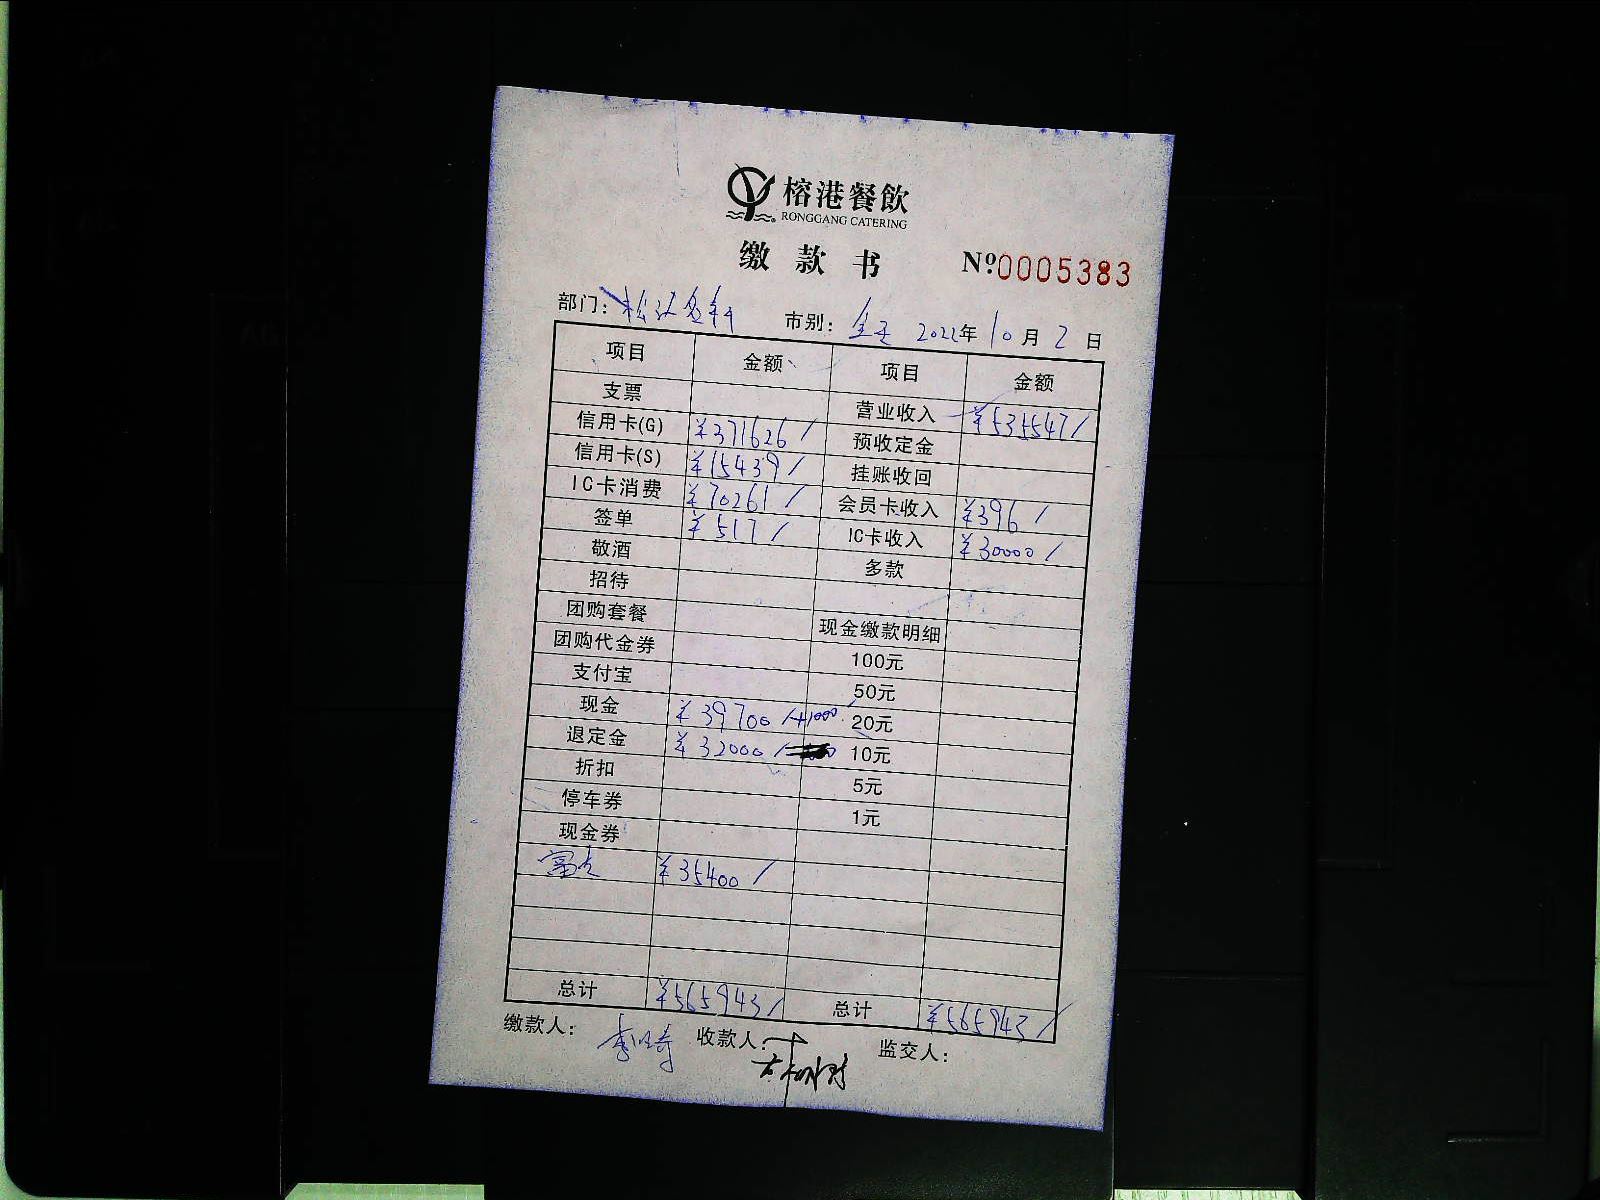 榕港餐飲
RONGGANG CATERING
缴款书 Nº0005383
部门: 市别: 全天 2022年10月2日
项目 金额 项目 金额
支票 营业收入 ¥535547/
信用卡(G) ¥371626/ 预收定金
信用卡(S) ¥15439/ 挂账收回
IC卡消费 ¥70261/ 会员卡收入 ¥396/
签单 ¥517/ IC卡收入 ¥30000/
敬酒 多款
招待
团购套餐 现金缴款明细
团购代金券 100元
支付宝 50元
现金 ¥39700/+1000 20元
退定金 ¥32000/ 10元
折扣 5元
停车券 1元
现金券
¥35400/
总计 ¥565943/ 总计 ¥565943/
缴款人: 收款人: 监交人: